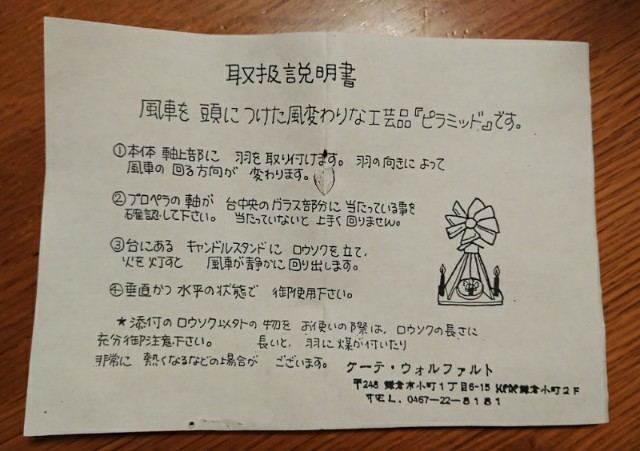 取扱説明書
風車を 頭につけた風変わりな工芸品『ピラミッド』です。
①本体 軸上部に 羽を取り付けます。 羽の向きに よって
風車の 回る方向が 変わります。
②プロペラの 軸が 台中央の ガラス部分に 当たっている事を
確認して下さい。 当たっていないと 上手く 回りません。
③台にある キャンドルスタンドに ロウソクを 立て、
火を 灯すと 風車が静かに 回り出します。
④垂直かつ 水平の 状態で 御使用下さい。
★添付の ロウソク以外の 物を お使いの 際は、ロウソクの 長さに
充分御注意下さい。 長いと、羽に 煤が付いたり
非常に 熱くなるなどの場合が ございます。
ケーテ・ウォルファルト
〒248 鎌倉市小町1丁目6-15 鎌倉小町2F
TEL. 0467-22-8181